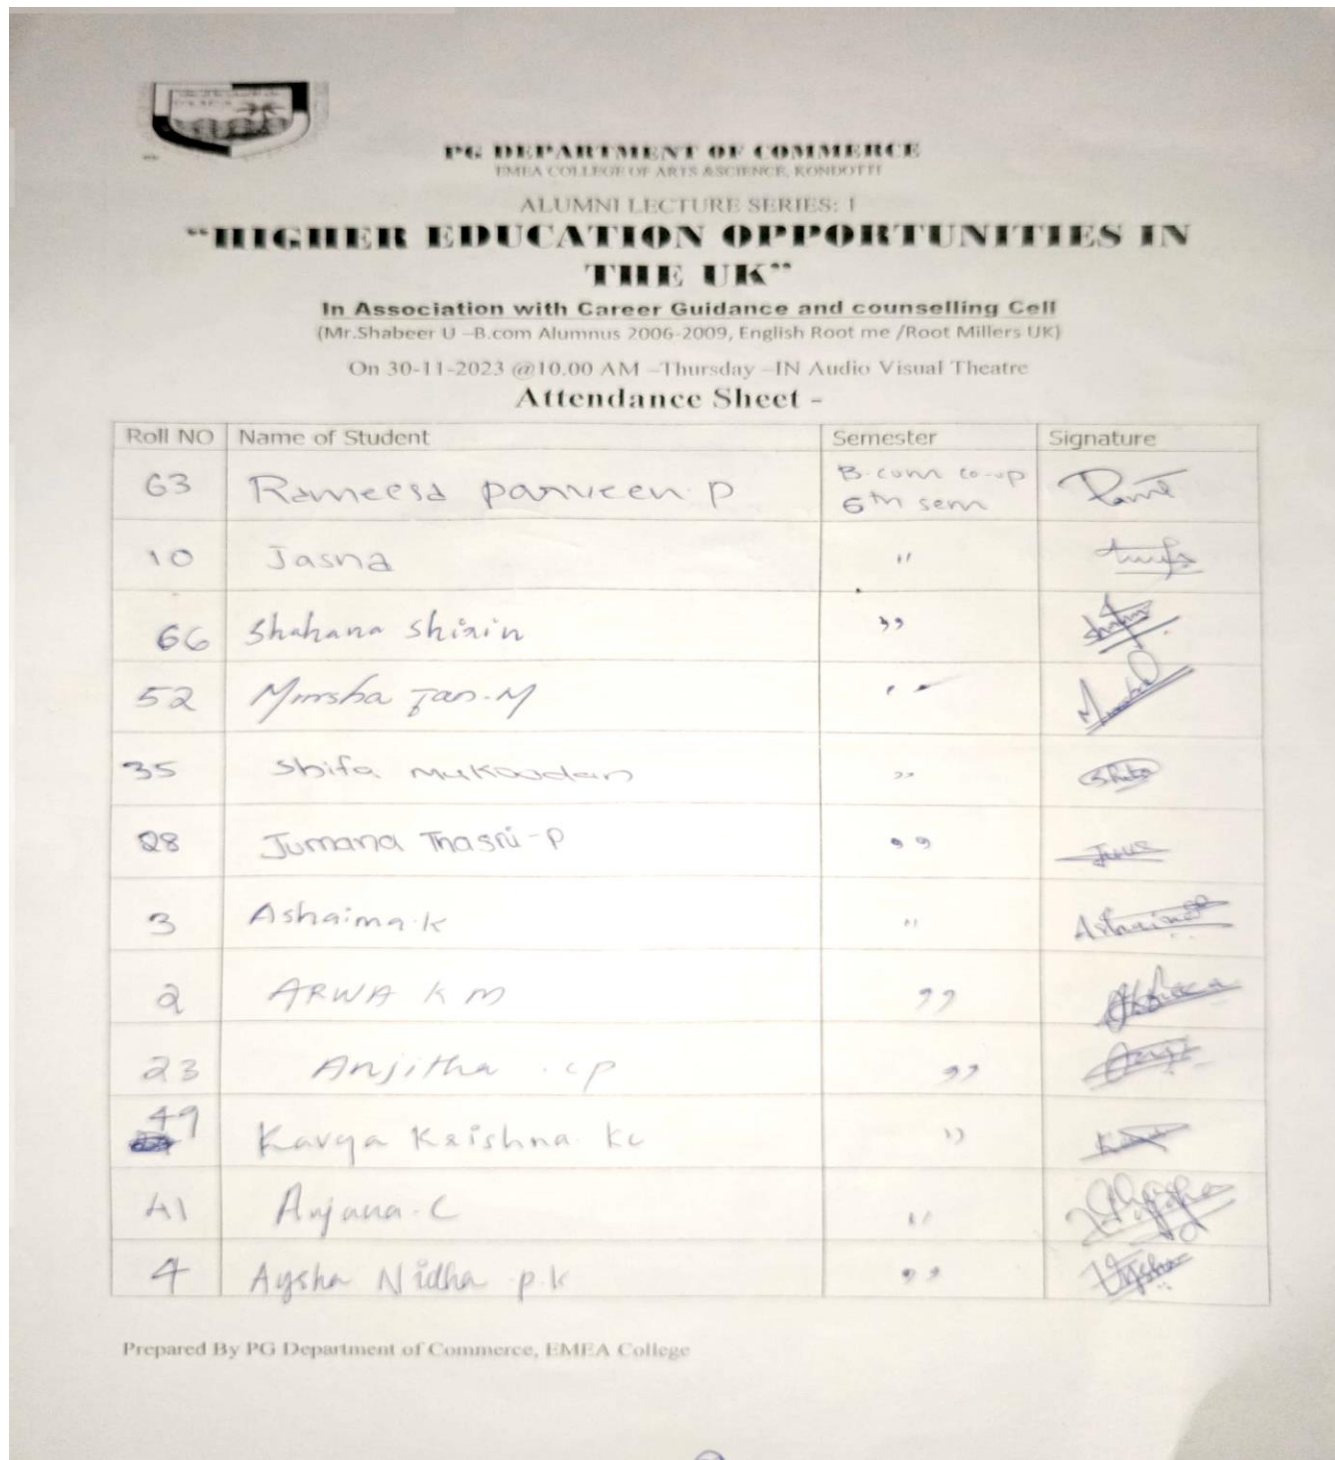 PG DEPARTMENT OF COMMERCE
EMEA COLLEGE OF ARTS &SCIENCE, KONDOTTI
ALUMNI LECTURE SERIES: 1
"HIGHER EDUCATION OPPORTUNITIES IN
THE UK"
In Association with Career Guidance and counselling Cell
(Mr.Shabeer U –B.com Alumnus 2006-2009, English Root me /Root Millers UK)
On 30-11-2023 @10.00 AM –Thursday –IN Audio Visual Theatre
Attendance Sheet -
Roll NO Name of Student Semester Signature
63 Rameesa parveen p B.com co-op
6th sem
10 Jasna "
66 Shahana Shirin "
52 Minsha Jan.M "
35 Shifa Mukkoodan "
28 Jumana Thasni-P " Juna
3 Ashaima.k " Ashaima
2 ARWA K M "
23 Anjitha .cp "
49 Kavya Krishna kc "
41 Anjana.C "
4 Aysha Nidha p.k " Aysha
Prepared By PG Department of Commerce, EMEA College